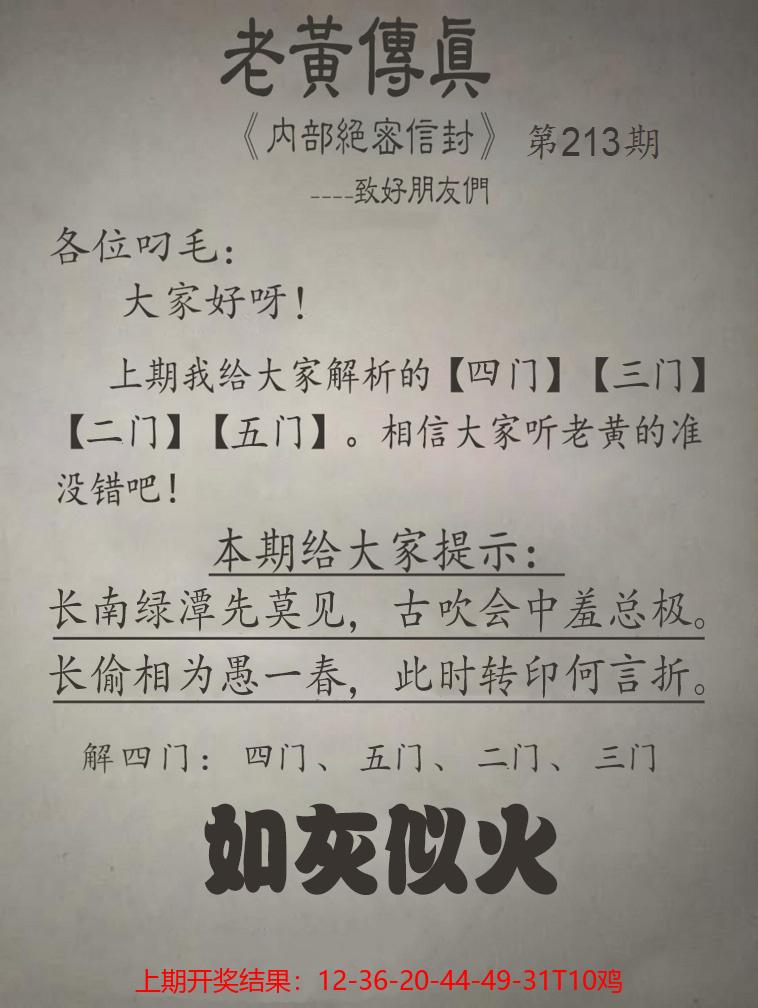 老黃傳眞
《内部絕密信封》 第213期
----致好朋友們
各位叼毛：
大家好呀！
上期我给大家解析的【四门】【三门】
【二门】【五门】。相信大家听老黄的准
没错吧！
本期给大家提示：
长南绿潭先莫见，古吹会中羞总极。
长偷相为愚一春，此时转印何言折。
解四门：四门、五门、二门、三门
如灰似火
上期开奖结果：12-36-20-44-49-31T10鸡